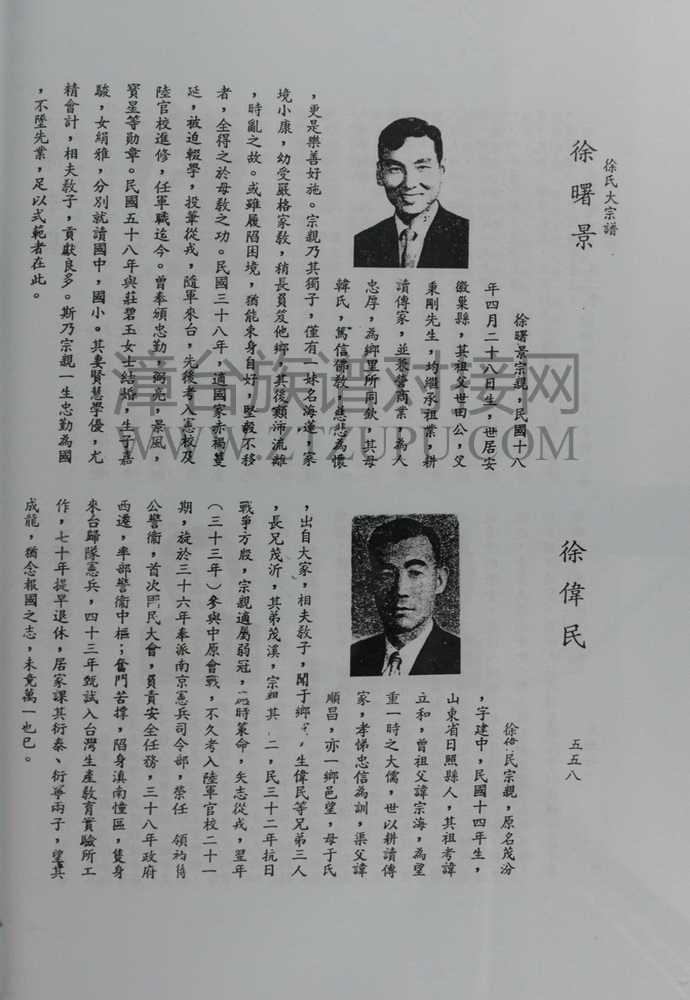 徐氏大宗譜
徐曙景
徐曙景宗親，民國十八
年四月二十八日生，世居安
徽巢縣，其祖父世田公，父
秉剛先生，均繼承祖業，耕
讀傳家，並兼營商業，為人
忠厚，為鄉里所同欽，其母
韓氏，篤信佛教，慈悲為懷
，更是樂善好施。宗親乃其獨子，僅有一妹名海蓮，家
境小康，幼受嚴格家教，稍長負笈他鄉，其後顛沛流離
，時亂之故。或雖履陷困境，猶能束身自好，堅毅不移
者，全得之於母教之功。民國三十八年，適國家赤禍蔓
延，被迫輟學，投筆從戎，隨軍來台，先後考入憲校及
陸官校進修，任軍職迄今。曾奉頒忠勤，弼亮，景風，
寶星等勛章。民國五十八年與莊碧玉女士結婚，生子嘉
駿，女絹雅，分別就讀國中，國小。其妻賢慧學優，尤
精會計，相夫教子，貢獻良多。斯乃宗親一生忠勤為國
，不墜先業，足以式範者在此。
徐偉民
五五八
徐偉民宗親，原名茂汾
，字建中，民國十四年生，
山東省日照縣人，其祖考諱
立和，曾祖父諱宗海，為望
重一時之大儒，世以耕讀傳
家，孝悌忠信為訓，渠父諱
順昌，亦一鄉邑望，母于氏
，出自大家，相夫教子，聞于鄉，生偉民等兄弟三人
，長兄茂沂，其弟茂溪，宗親其二，民三十二年抗日
戰爭方殷，宗親適屬弱冠，時革命，矢志從戎，翌年
（三十三年）參與中原會戰，不久考入陸軍官校二十一
期，旋於三十六年奉派南京憲兵司令部，榮任 領袖侍
公警衛，首次國民大會，負責安全任務，三十八年政府
西遷，率部警衛中樞；奮鬥苦撐，陷身滇南憧區，隻身
來台歸隊憲兵，四十三年甄試入台灣生產教育實驗所工
作，七十年提早退休，居家課其衍泰、衍華兩子，望其
成龍，猶念報國之志，未竟萬一也已。
漳台族谱对接网
WWW.ZTZUPU.COM